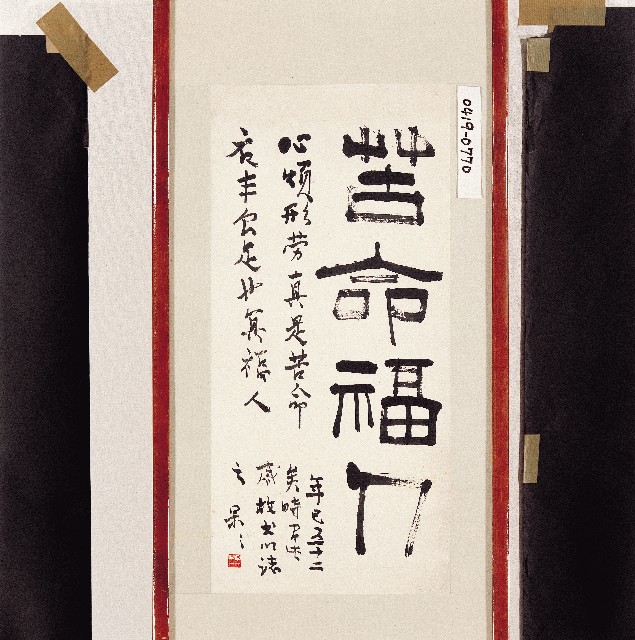 苦命福人
心煩形劳真是苦命
衣丰食足也算福人
年已五十二
矣時
感故书以誌
之 果之
0419-0770